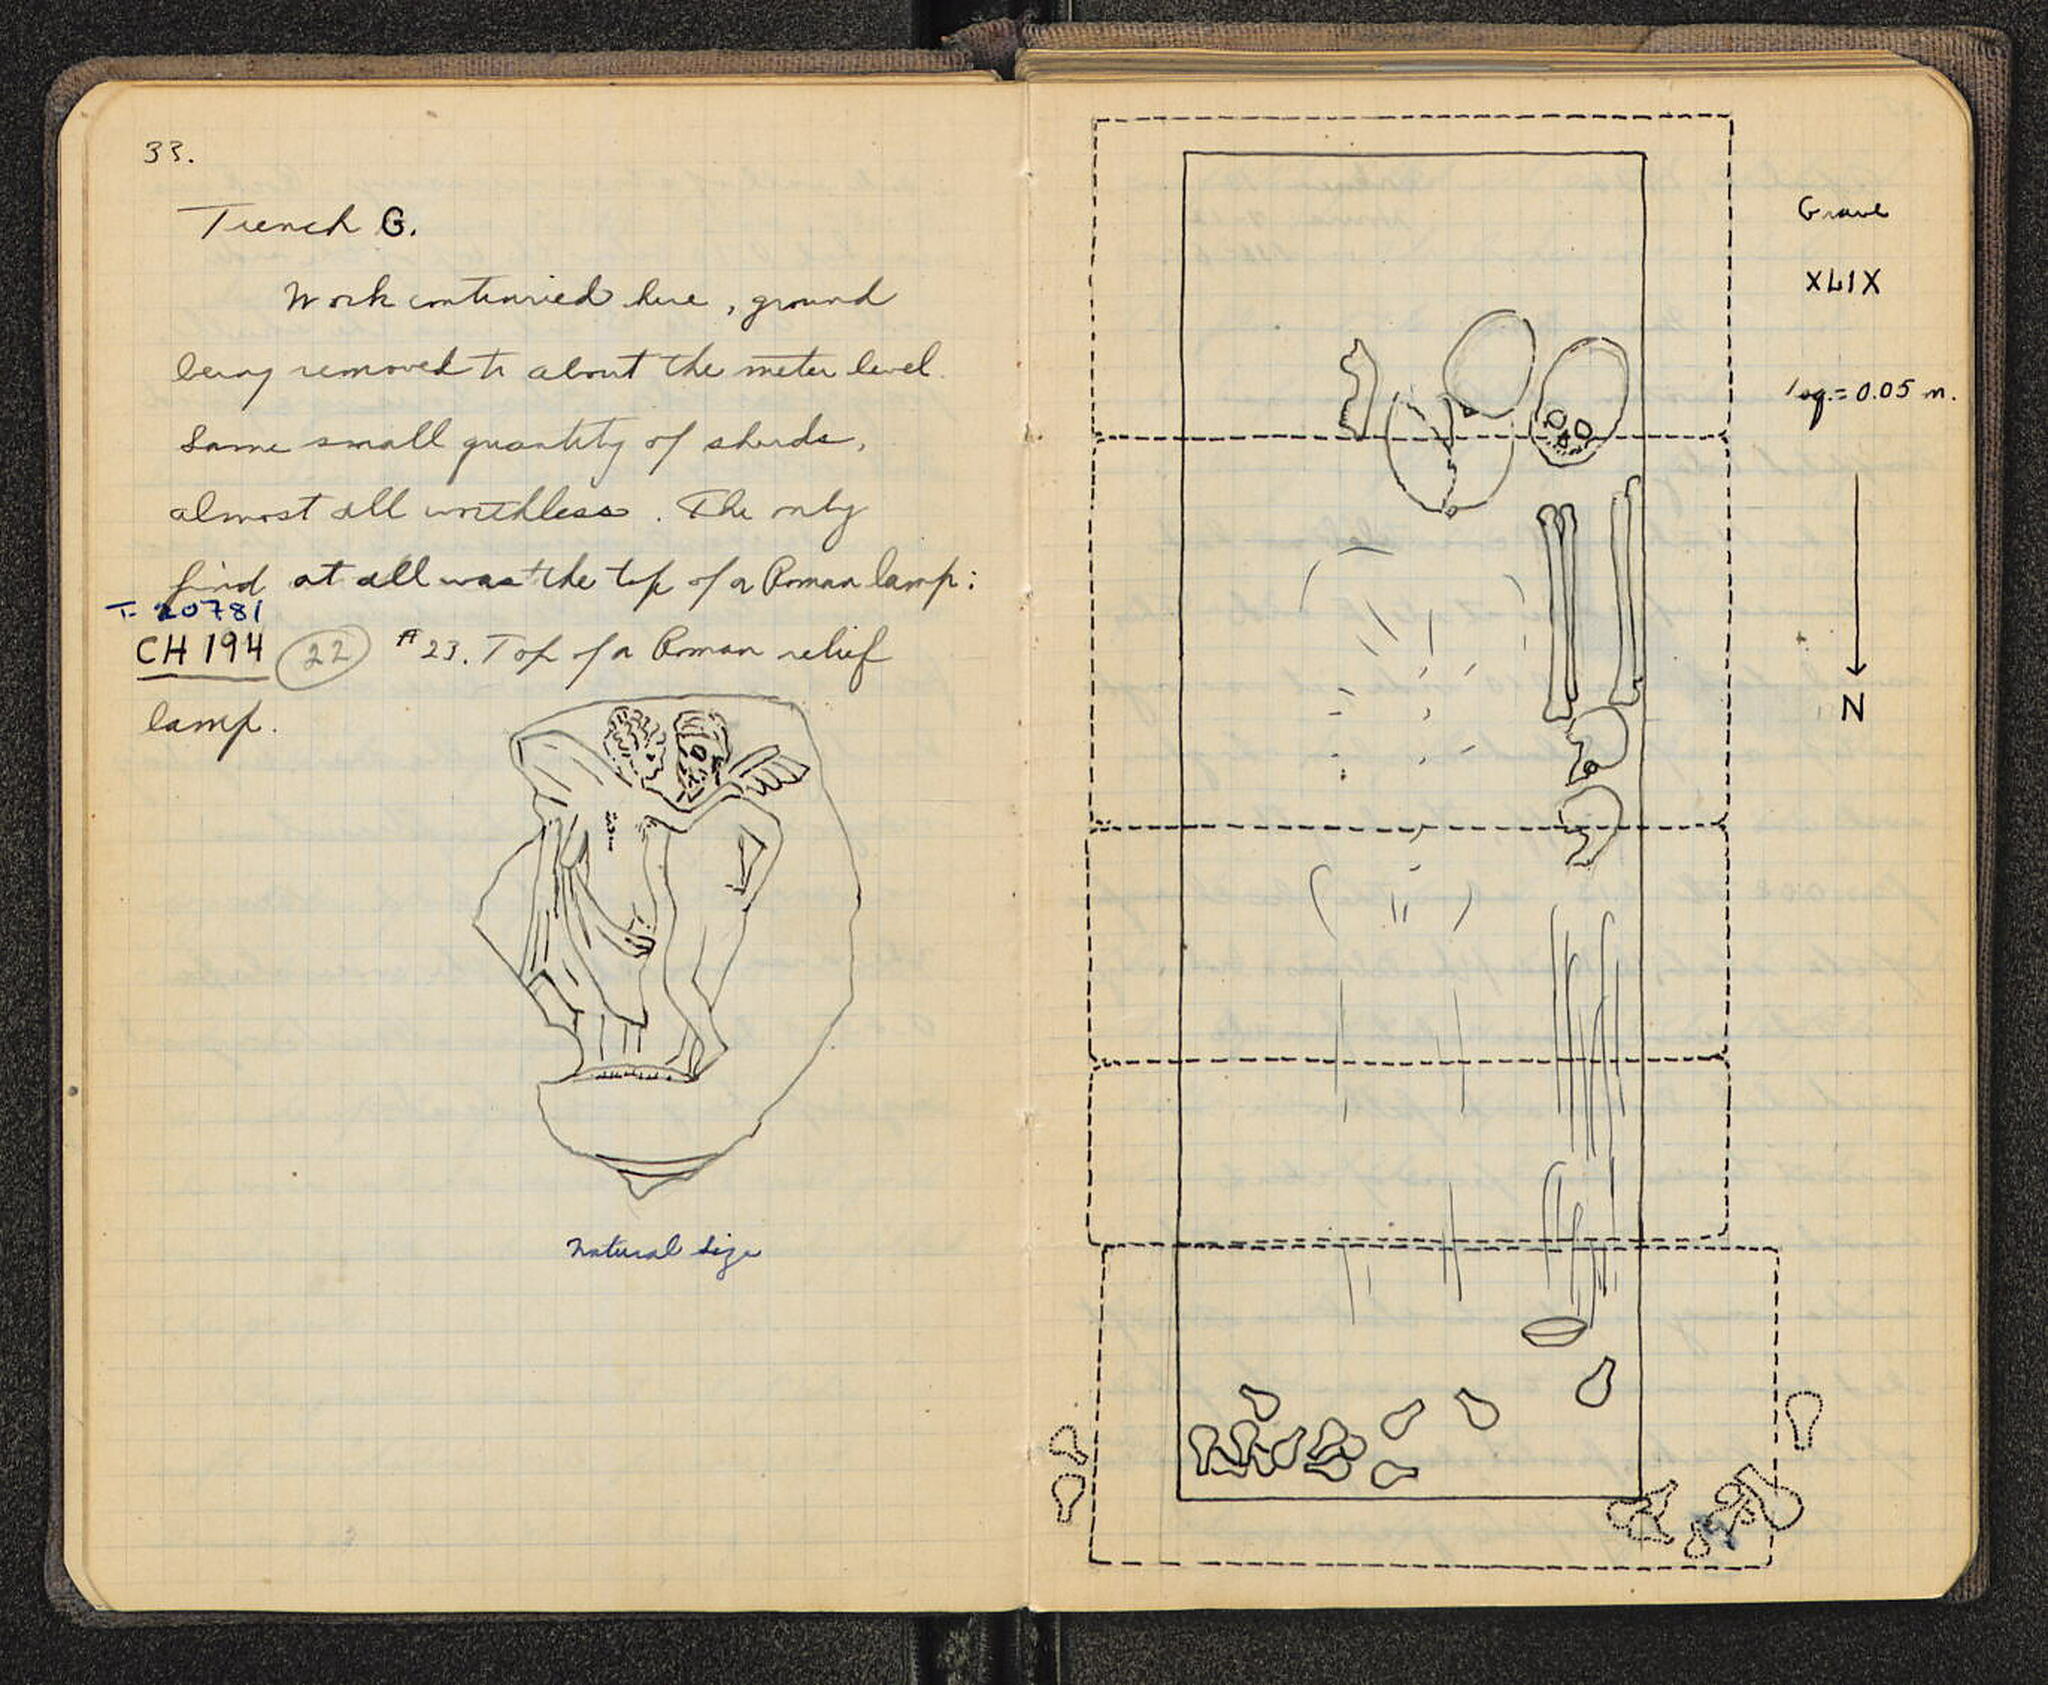 33.
Trench G.
Work continued here, ground
being removed to about the meter level.
Same small quantity of sherds,
almost all worthless. The only
find at all was the top of a Roman lamp:
T. 20781
CH 194 22 #23. Top of a Roman relief
lamp.
Natural size
Grave
XLIX
1 sq. = 0.05 m.
N